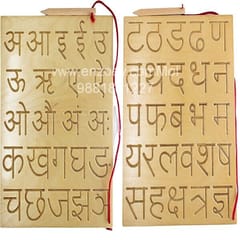 अ आ इ ई उ
ऊ ऋ ए ऐ
ओ औ अं अः
क ख ग घ ङ
च छ ज झ ञ
ट ठ ड ढ ण
त थ द ध न
प फ ब भ म
य र ल व श ष
स ह क्ष त्र ज्ञ